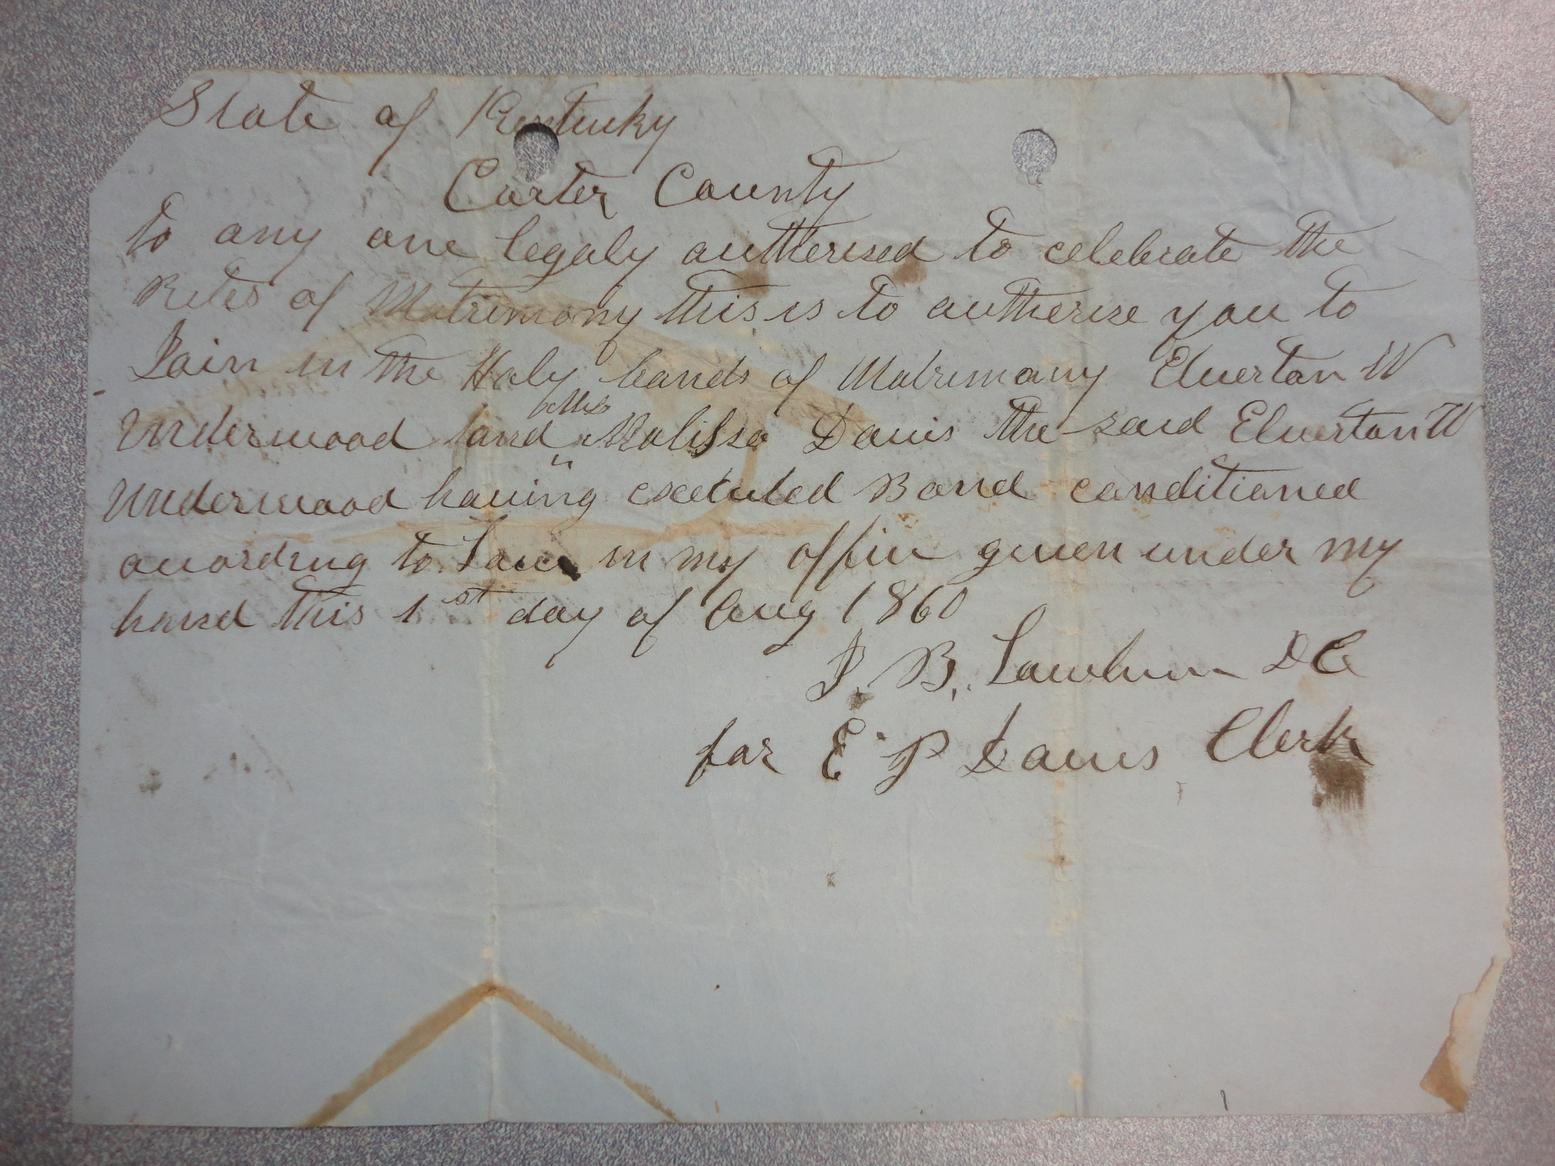 State of Kentucky
Carter County
To any one legaly autherised to celebrate the
Rites of Matrimony this is to autherize you to
Join in the Holy bands of Matrimony Elverton W
Underwood and Miss Malissa Davis the said Elverton W
Underwood having executed Bond conditioned
according to Law in my office given under my
hand this 1st day of Aug 1860
J. B. Lawhun DC
for E P Davis Clerk